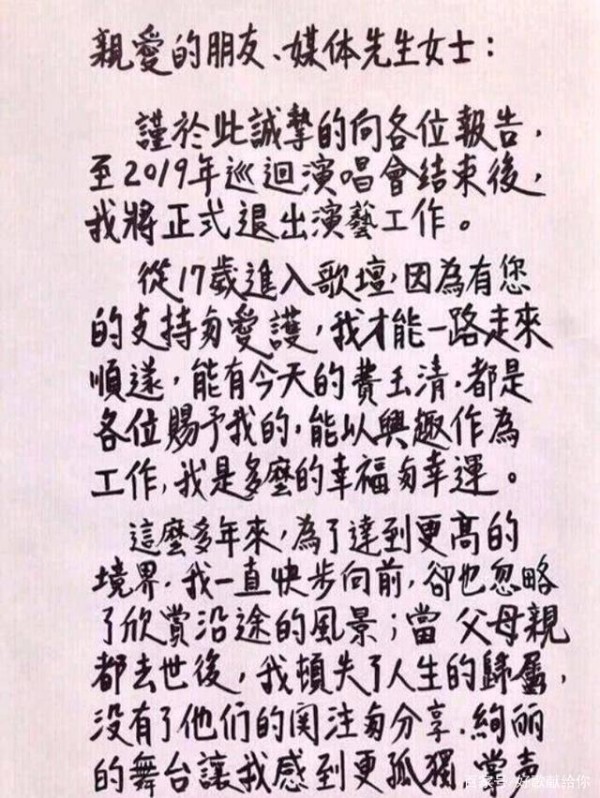 親愛的朋友、媒体先生女士：
謹於此誠摯的向各位報告，
至2019年巡迴演唱會结束後，
我將正式退出演藝工作。
從17歲進入歌壇，因為有您
的支持匇愛護，我才能一路走來
順遂，能有今天的費玉清，都是
各位賜予我的，能以興趣作為
工作，我是多麼的幸福匇幸運。
這麼多年來，為了達到更高的
境界，我一直快步向前，卻也忽略
了欣賞沿途的風景；當父母親
都去世後，我頓失了人生的歸屬，
没有了他们的関注匇分享，絢丽
的舞台讓我感到更孤獨
百家号/好歌献给你